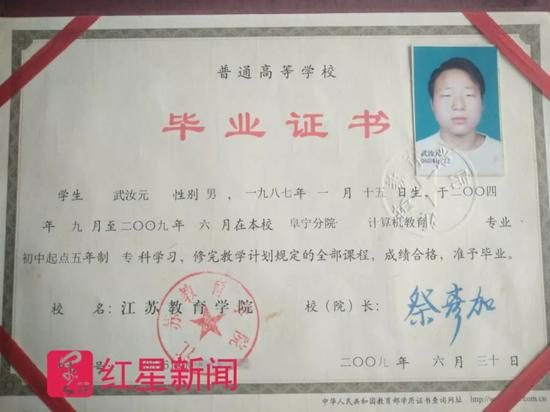 普通高等学校
毕业证书
武汝元
学生 武汝元 性别 男，一九八七年 一 月 十五 日生，于二〇〇四
年 九 月至二〇〇九年 六 月在本校 阜宁分院 计算机教育 专业
初中起点五年制 专 科学习，修完教学计划规定的全部课程，成绩合格，准予毕业。
校 名：江苏教育学院 校（院）长：
江苏教育学院
号
二〇〇九 年 六 月 三十 日
红星新闻
中华人民共和国教育部学历证书查询网址